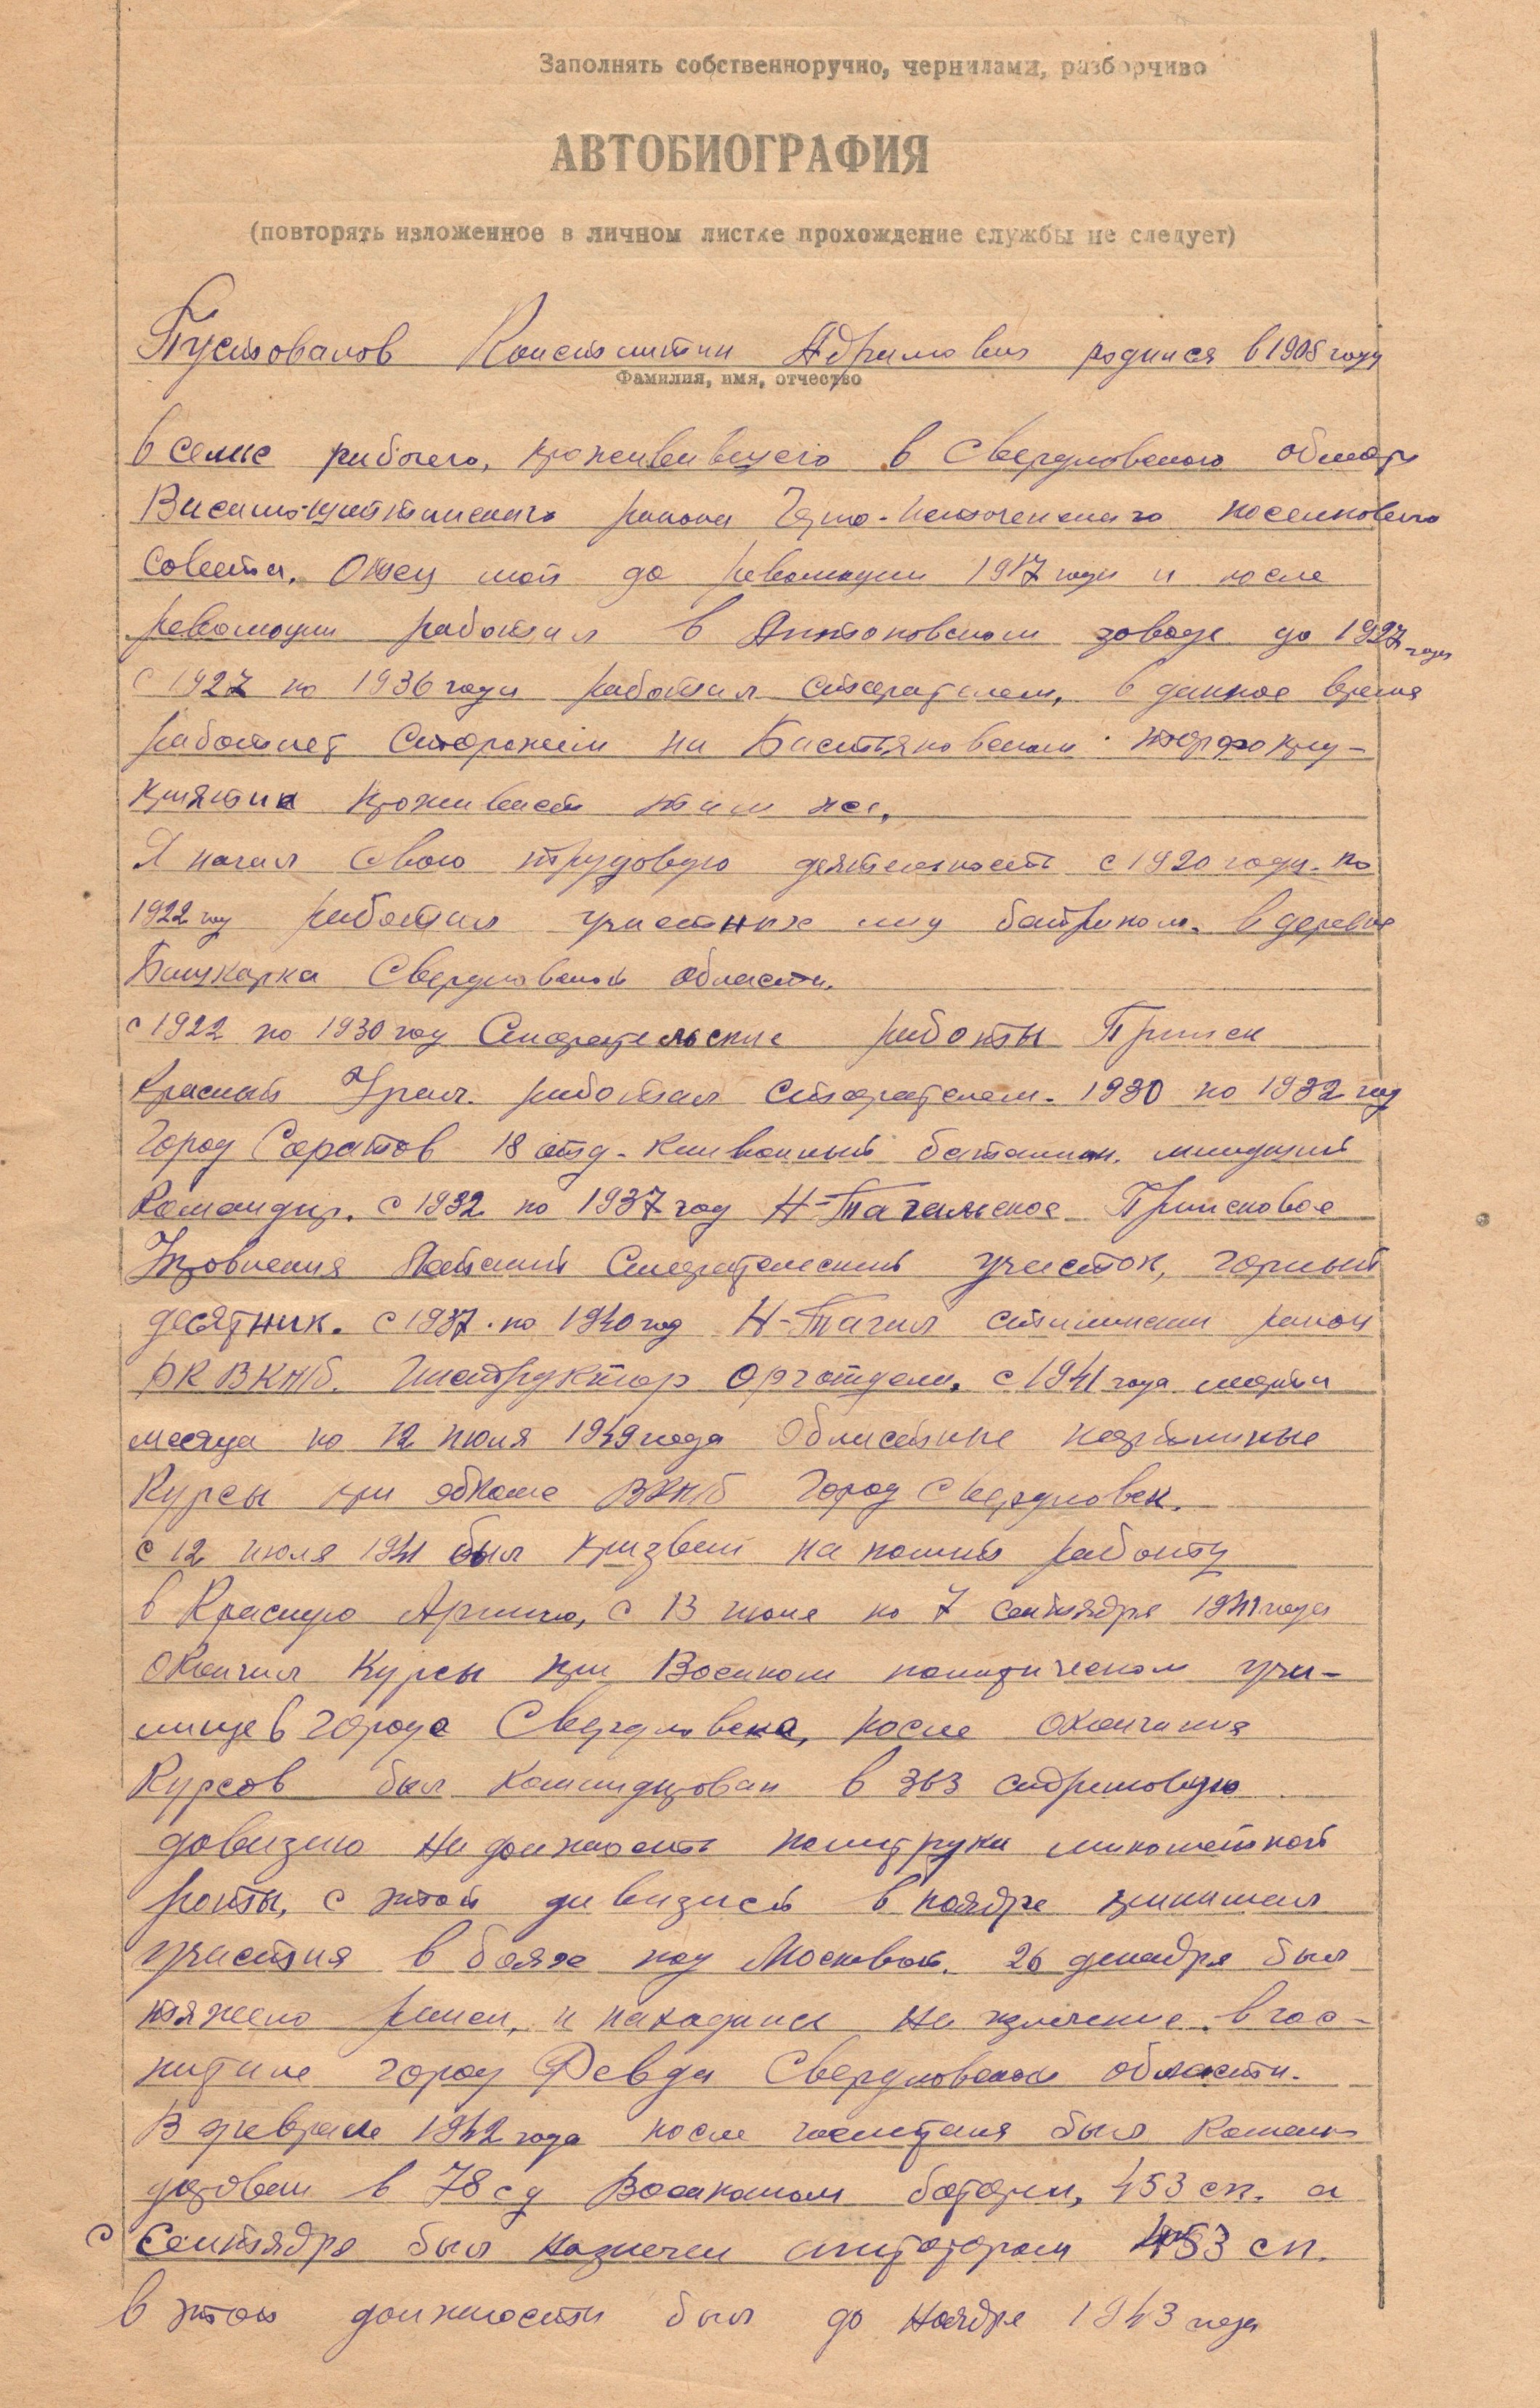 Заполнять собственноручно, чернилами, разборчиво
АВТОБИОГРАФИЯ
(повторять изложенное в личном листке прохождение службы не следует)
Пустовалов Константин родился в 1905 году
Фамилия, имя, отчество
в семье рабочего, проживвившего в Свердловского област
района поселкового
Совета. Отец мой до революции 1917 года и после
революции работал в Антоновском заводе до 1927 года
С 1927 по 1936 года работал старателем, в данное время
работает Сторожем на Бастьяновском торфопред-
приятии проживает там же.
Я начал свою трудовую деятельность с 1920 года по
1922 год работал у частных лиц батраком. в деревне
Башкарка Свердловской области.
с 1922 по 1930 год Старательские работы Прииск
Красный Урал. работал старателем. 1930 по 1932 год
город Саратов 18 отд. конвойный батальон. младший
Командир. с 1932 по 1937 год Н-Тагильское Приисковое
Управления Старательский участок, горный
десятник. с 1937 по 1940 год Н-Тагил сталинский район
РК ВКПб. Инструктор Орготдела. с 1941 года марта
месяца по 12 июля 1949 года Областные партийные
Курсы при обкоме ВКПб город Свердловск.
с 12 июля 1941 был призван на полит работу
в Красную Армию, с 13 июля по 7 сентября 1941 года
Окончил Курсы при Военном политическом учи-
лище в города Свердловска, после окончания
Курсов был командирован в 363 стрелковую
дивизию на должность политрука минометной
роты, с этой дивизией в ноябре принимал
участия в боях под Москвой. 26 декабря был
тяжело ранен, и находился на излечение в гос-
питале город Ревда Свердловской области.
В феврале 1942 года после госпиталя был Коман-
дирован в 78 сд Военкомом батареи, 453 сп. а
с Сентября был назначен агитатором 453 сп.
в этой должности был до ноября 1943 года